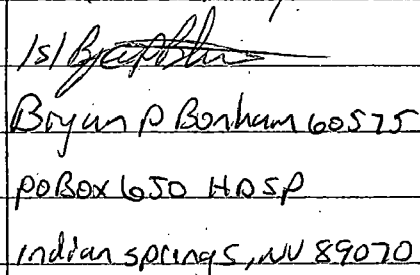 /s/
Bryan P Bonham 60575
PO Box 650 HDSP
indian springs, NV 89070